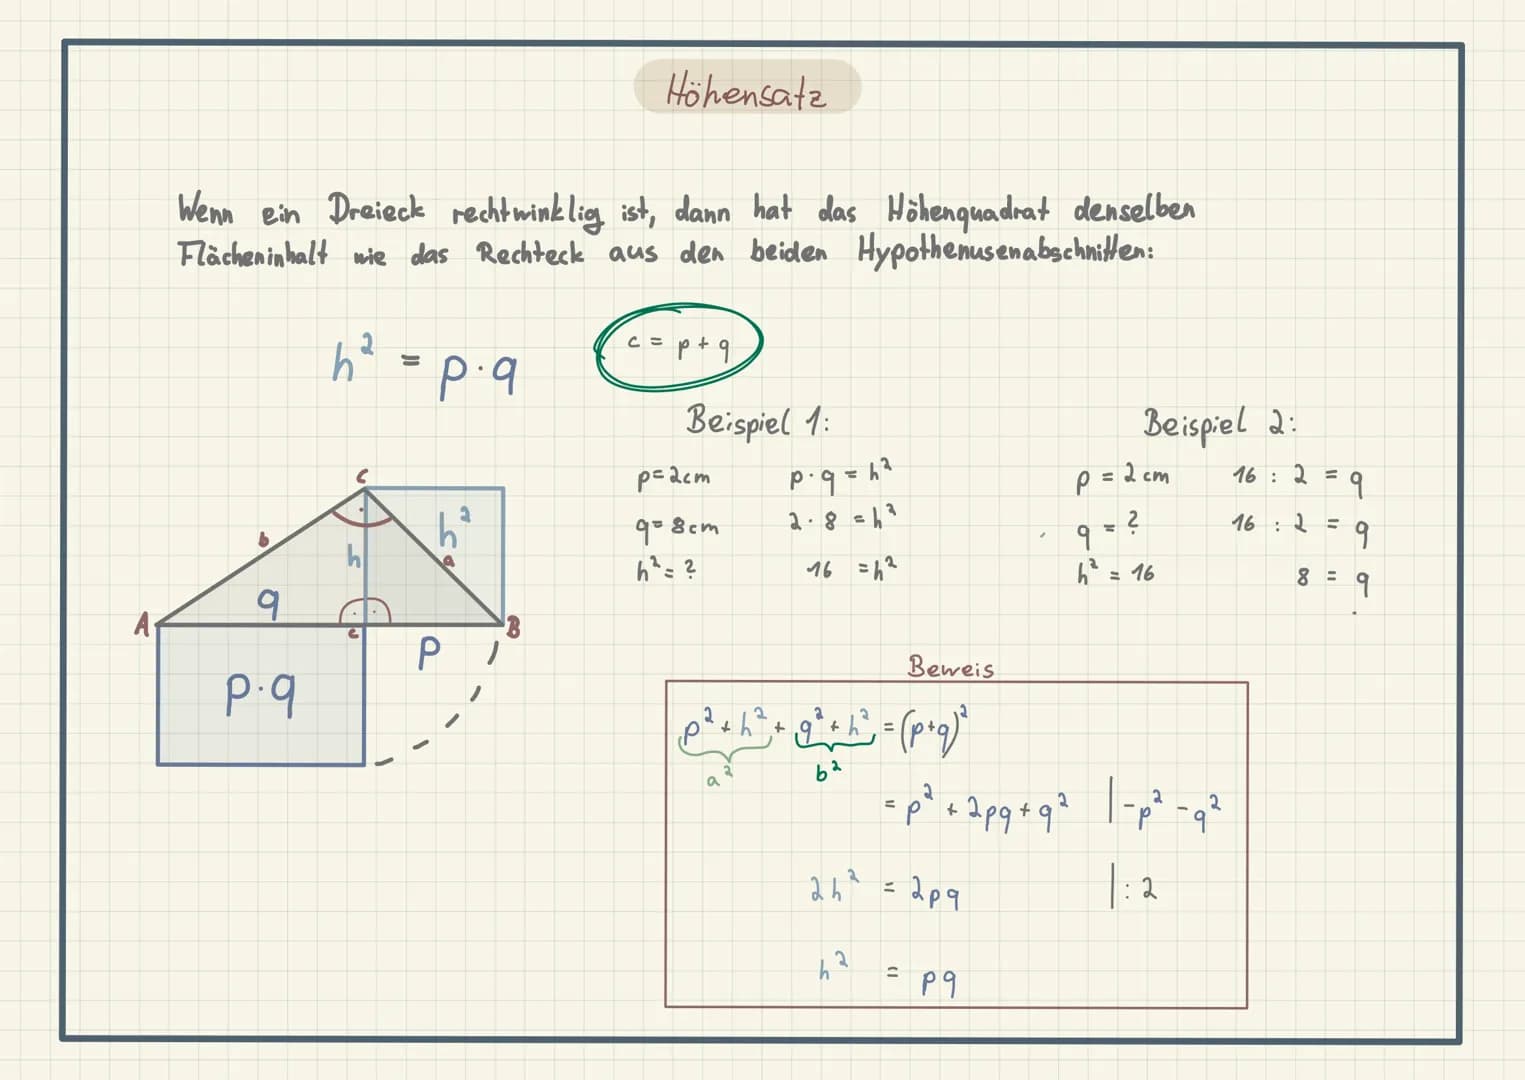 Höhensatz
Wenn ein Dreieck rechtwinklig ist, dann hat das Höhenquadrat denselben
Flächeninhalt wie das Rechteck aus den beiden Hypothenusenabschnitten:
h² = p·q
c = p + q
Beispiel 1:
p = 2cm p·q = h²
q = 8cm 2·8 = h²
h² = ? 16 = h²
Beispiel 2:
p = 2 cm 16 : 2 = q
q = ? 16 : 2 = q
h² = 16 8 = q
C
b
h
h²
a
q
A
c
B
p
p·q
Beweis
p² + h² + q² + h² = (p+q)²
a² b²
= p² + 2pq + q² |-p² - q²
2h² = 2pq |: 2
h² = pq